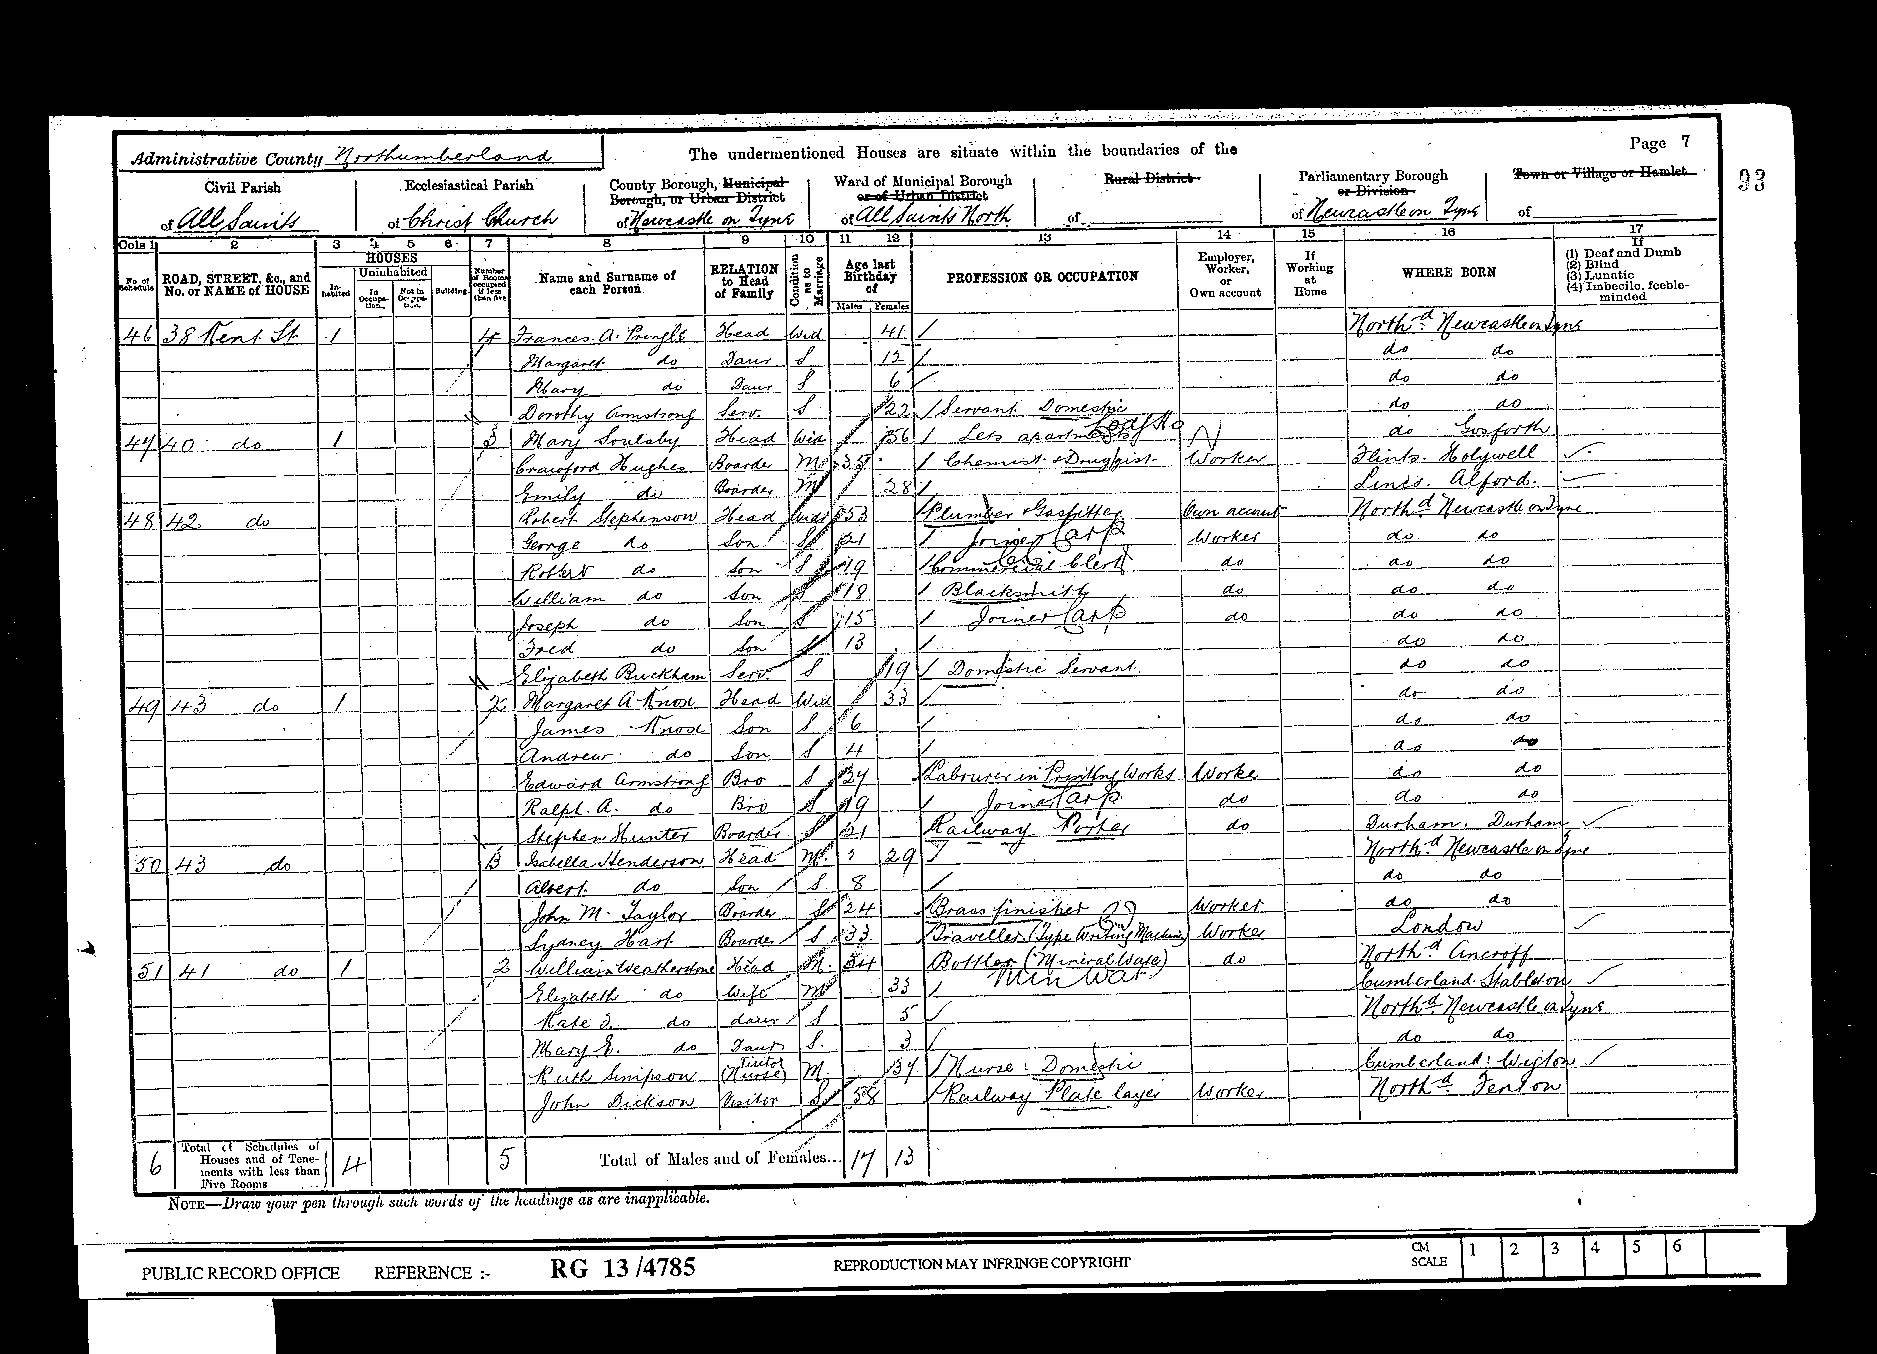 Administrative County Northumberland
The undermentioned Houses are situate within the boundaries of the
Page 7
93
Civil Parish of All Saints
Ecclesiastical Parish of Christ Church
County Borough, Municipal Borough, or Urban District of Newcastle on Tyne
Ward of Municipal Borough or of Urban District of All Saints North
Rural District of
Parliamentary Borough or Division of Newcastle on Tyne
Town or Village or Hamlet of
Cols 1 2 3 4 5 6 7 8 9 10 11 12 13 14 15 16 17
No. of Schedule
ROAD, STREET, &c., and No. or NAME of HOUSE
HOUSES
Inhabited
Uninhabited
In Occupation.
Not in Occupation.
Building
Number of Rooms occupied if less than five
Name and Surname of each Person
RELATION to Head of Family
Condition as to Marriage
Age last Birthday of
Males Females
PROFESSION OR OCCUPATION
Employer, Worker, or Own account
If Working at Home
WHERE BORN
If
(1) Deaf and Dumb
(2) Blind
(3) Lunatic
(4) Imbecile, feeble-minded
46 38 Kent St 1 4 Frances A. Pringle Head Wid 41 Northd Newcastle on Tyne
Margaret do Daur S 12 do do
Mary do Daur S 6 do do
Dorothy Armstrong Serv. S 22 Servant Domestic do do
47 40 do 1 3 Mary Soulsby Head Wid 56 Lets apartments do Gosforth
Crawford Hughes Boarder M 35 Chemist & Druggist Worker Flints. Holywell
Emily do Boarder M 28 Lincs. Alford.
48 42 do Robert Stephenson Head Widr 53 Plumber Gasfitter Own account Northd Newcastle on Tyne
George do Son S 21 Joiner Carp Worker do do
Robert do Son S 19 Commercial Clerk do do do
William do Son S 18 Blacksmith do do do
Joseph do Son S 15 Joiner Carp do do do
Fred do Son S 13 do do
Elizabeth Buckham Serv. S 19 Domestic Servant do do
49 43 do 1 2 Margaret A Knox Head Wid 33 do do
James Knox Son S 6 do do
Andrew do Son S 4 do do
Edward Armstrong Bro S 27 Labourer in Printing Works Worker do do
Ralph A. do Bro S 19 Joiner Carp do do do
Stephen Hunter Boarder S 21 Railway Porter do Durham. Durham
50 43 do 3 Isabella Henderson Head M. 29 Northd Newcastle on Tyne
Albert do Son S 8 do do
John M. Taylor Boarder S 24 Brass finisher Worker do do
Sydney Hart Boarder S 33 Traveller (Type Writing Machine) Worker London
51 41 do 1 2 William Weatherstone Head M. 34 Bottler (Mineral Water) do Northd Ancroft
Min Wat
Elizabeth do Wife M 33 Cumberland
Kate I. do daur S 5 Northd Newcastle on Tyne
Mary E. do Daur S. 3 do do
Ruth Simpson Visitor (Nurse) M. 37 Nurse: Domestic Cumberland: Wigton
John Dickson Visitor S 58 Railway Plate layer Worker Northd Fenton
6 Total of Schedules of Houses and of Tenements with less than Five Rooms 4 5 Total of Males and of Females... 17 13
NOTE—Draw your pen through such words of the headings as are inapplicable.
PUBLIC RECORD OFFICE REFERENCE :- RG 13/4785 REPRODUCTION MAY INFRINGE COPYRIGHT
CM SCALE 1 2 3 4 5 6